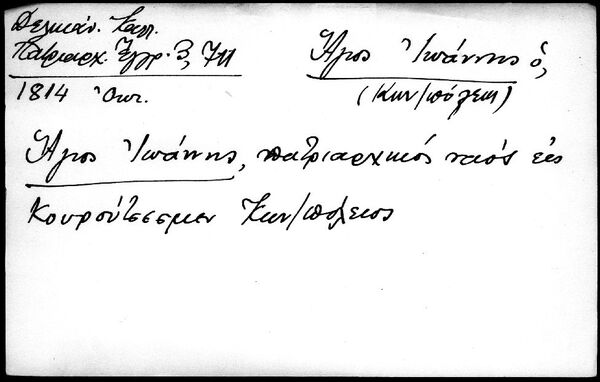 Δελικάν. Καλ.
Πατριαρχ. Ἔγγρ. 3, 711
1814 Ὀκτ.
Ἅγιος Ἰωάννης ὁ,
(Κων/πόλεως)
Ἅγιος Ἰωάννης, πατριαρχικός ναός εἰς
Κουρούτσεσμεν Κων/πόλεως